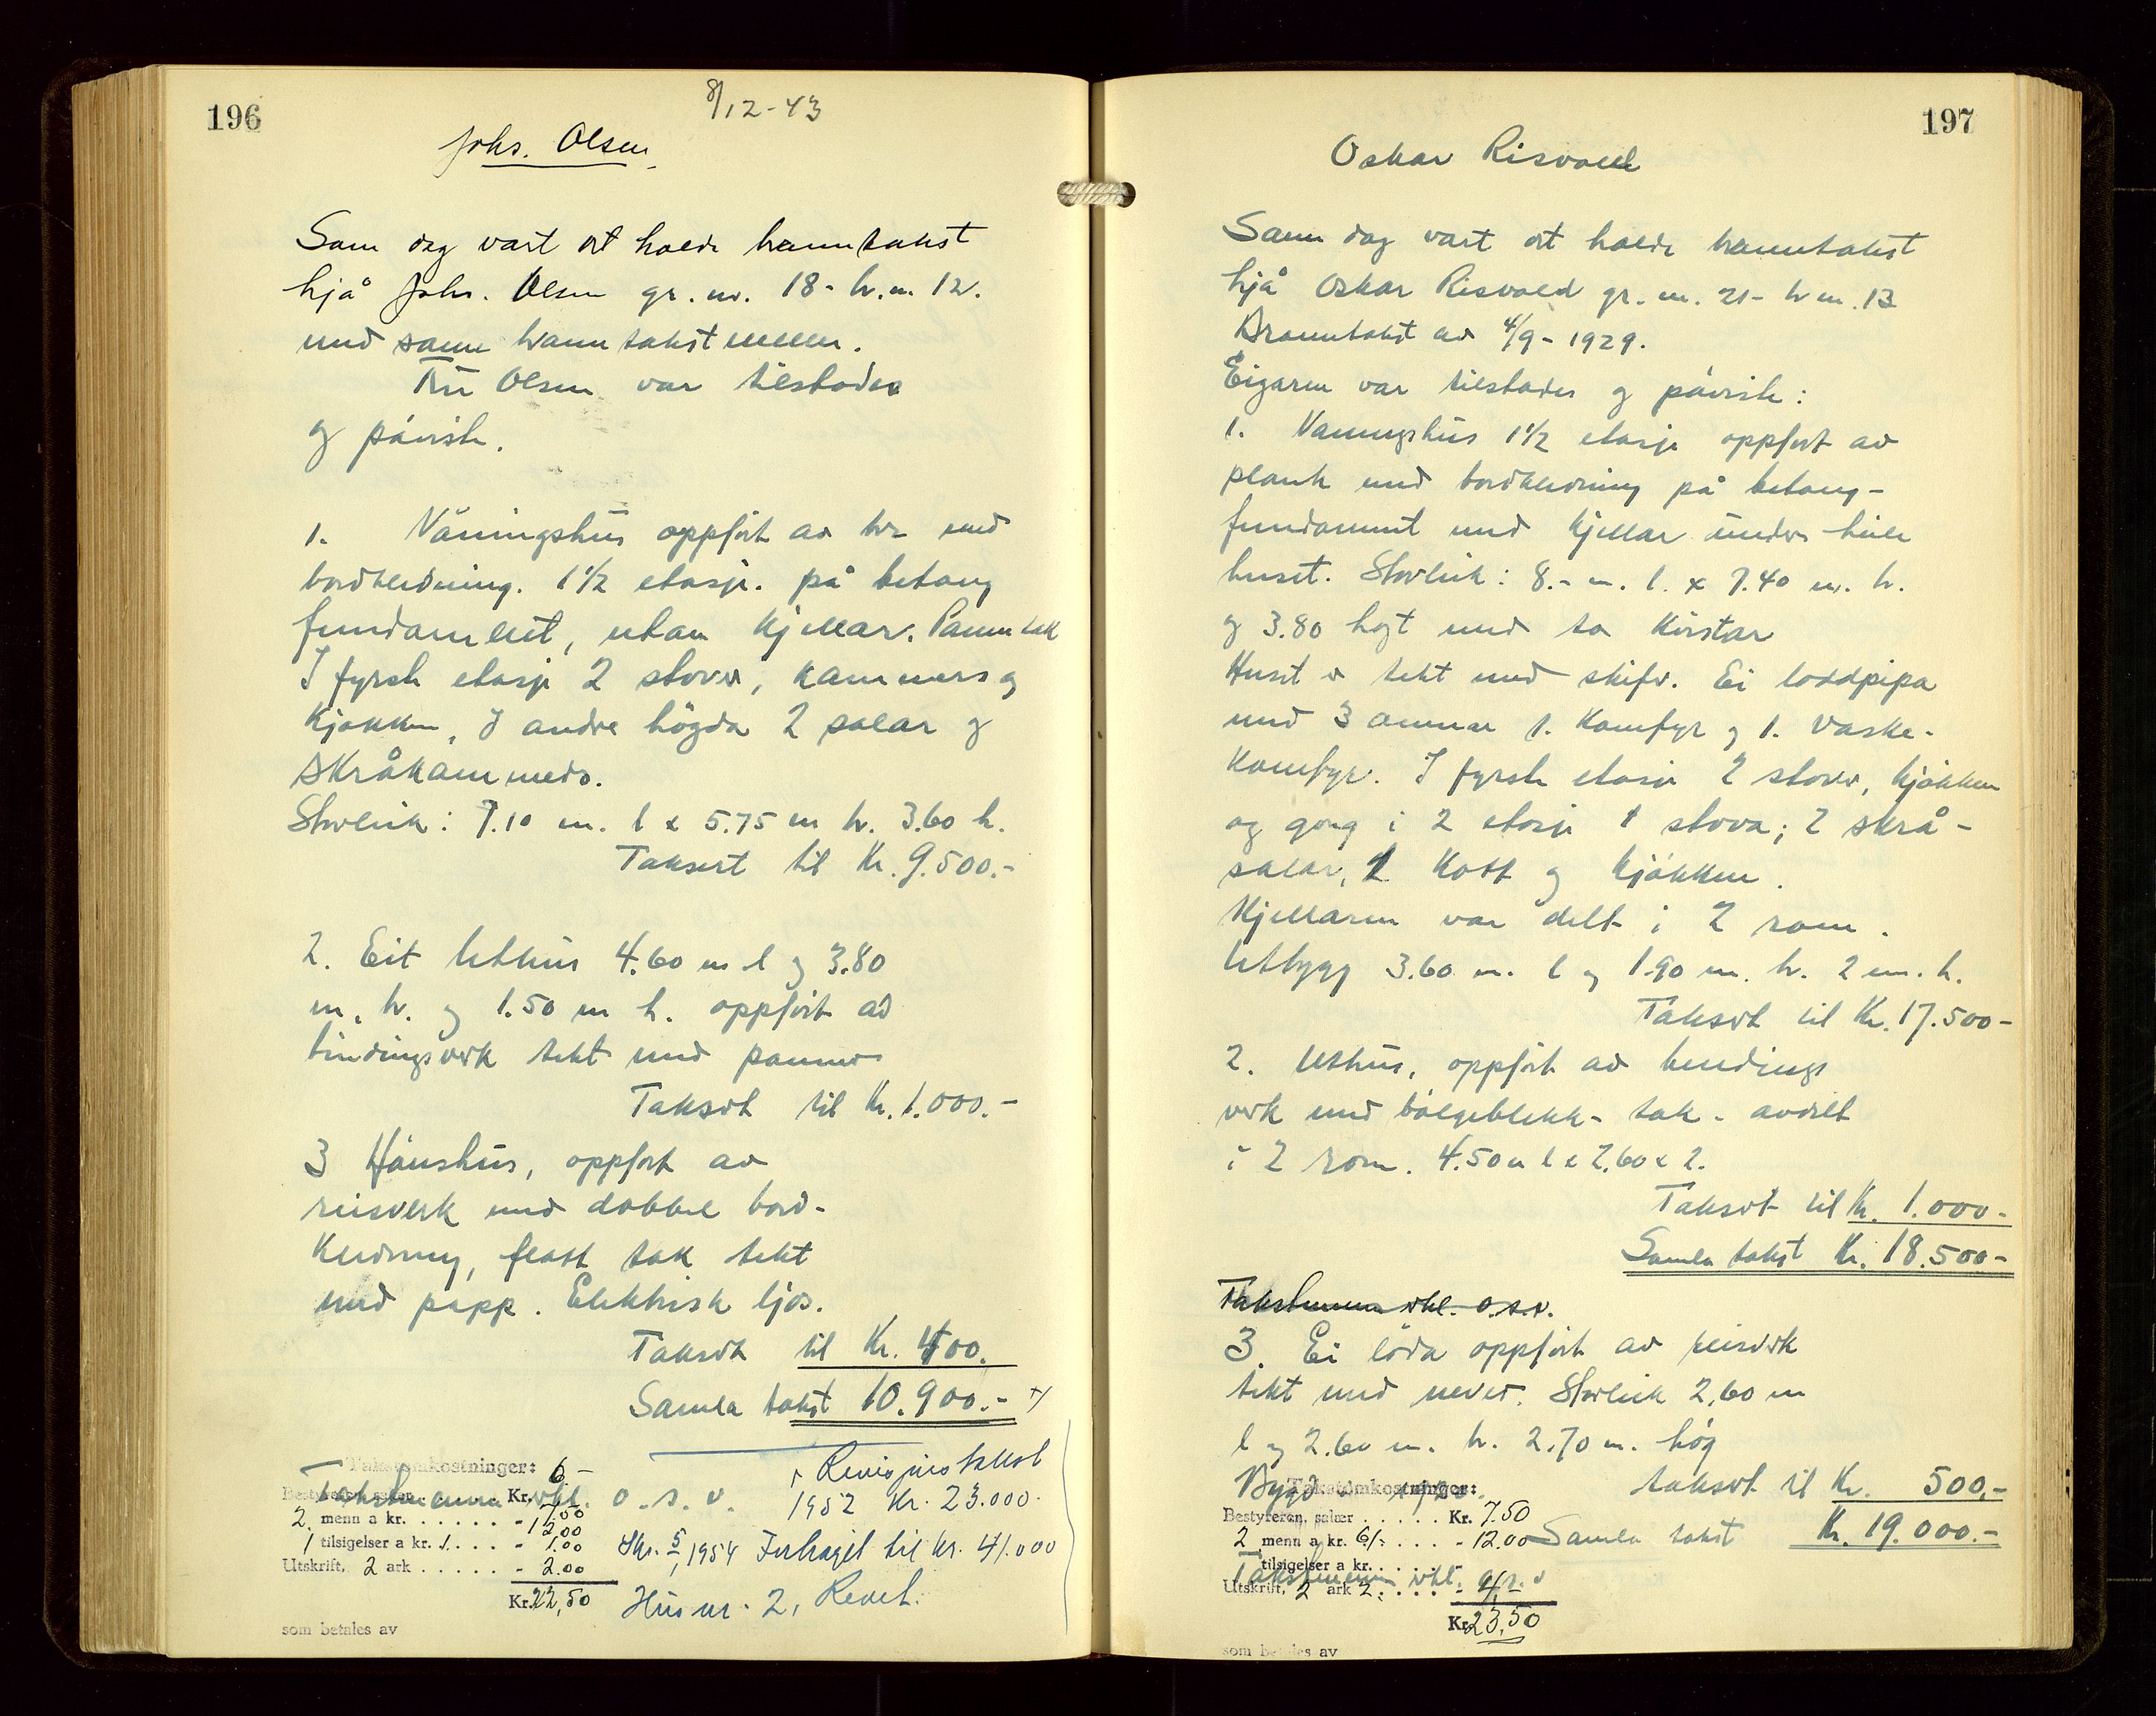 196
8/12-43
Johs. Olsen
Sam dag vart ot halde branntakst
hjå Johs. Olsen gr. nr. 18- br.n. 12.
med same branntakstmenn.
Fru Olsen var tilstades
og påviste.
1. Våningshus oppført av tre med
bordkledning. 1 1/2 etasje. på betong
fundament, utan kjellar. Panne tak
I fyrste etasje 2 stover, kammers og
kjøkken, I andre høgda 2 salar og
skråkammers.
Storleik: 7.10 m. l x 5.75 m br. 3.60 h.
Taksert til Kr. 9.500.-
2. Eit Uthus 4.60 m l og 3.80
m. br. og 1.50 m h. oppført av
bindingsverk tekt med panner
Taksert til Kr. 1.000.-
3 Hønshus, oppført av
reisverk med dobbel bord-
kledning, flatt tak tekt
med papp. Elektrisk ljos.
Taksert til Kr. 400.
Samla takst 10.900.- +/
Takstomkostninger: 6-
Takstmenn vbl. o.s.v.
+ Revisjonstakst
1952 Kr. 23.000.
2 menn a kr. . . . . . - 12.00
1 tilsigelser a kr. 1. . . . - 1.00
Skr. 5/1 1954 Forhøget til kr. 41.000
Utskrift, 2 ark . . . . . - 2.00
Kr. 22,50
Hus nr. 2, Revet.
som betales av
197
Oskar Risvold
Sam dag vart ot halde branntakst
hjå Oskar Risvold gr. n. 21- br n. 13
Branntakst av 4/9-1929.
Eigaren var tilstades og påviste:
1. Vaningshus 1 1/2 etasje oppført av
plank med bordkledning på betong-
fundament med kjellar under heile
huset. Storleik: 8.- m. l. x 7.40 m. br.
og 3.80 høgt med to kvistar
Huset er tekt med skifer. Ei loddpipa
med 3 omnar 1. Komfyr og 1. vaske-
komfyr. I fyrste etasje 2 stover, kjøkken
og gong i 2 etasje 1 stova; 2 skrå-
salar, 1 kott og kjøkken.
Kjellaren var delt i 2 rom.
Utbygg 3.60 m. l og 1.90 m. br. 2 m. h.
Taksert til Kr. 17.500-
2. Uthus, oppført av bindings
verk med bølgeblekk- tak- avdelt
i 2 rom. 4.50 m l x 2.60 x 2.
Taksert til Kr. 1.000-
Samla takst Kr. 18.500-
Takstmenn vbl. o.s.v.
3. Ei løda oppført av reisverk
tekt med never. Storleik 2,60 m
l og 2.60 m. br. 2.70 m. høg
Takstomkostninger:
taksert til Kr. 500,-
Bestyreren, salær . . . . . Kr. 7.50
2 menn a kr. 6/- . . . - 12.00
Samla takst Kr. 19.000.-
tilsigelser a kr. . . . .
Takstmenn vbl. o.s.v
Utskrift, 2 ark 2. . . . - 4,
Kr. 23,50
som betales av